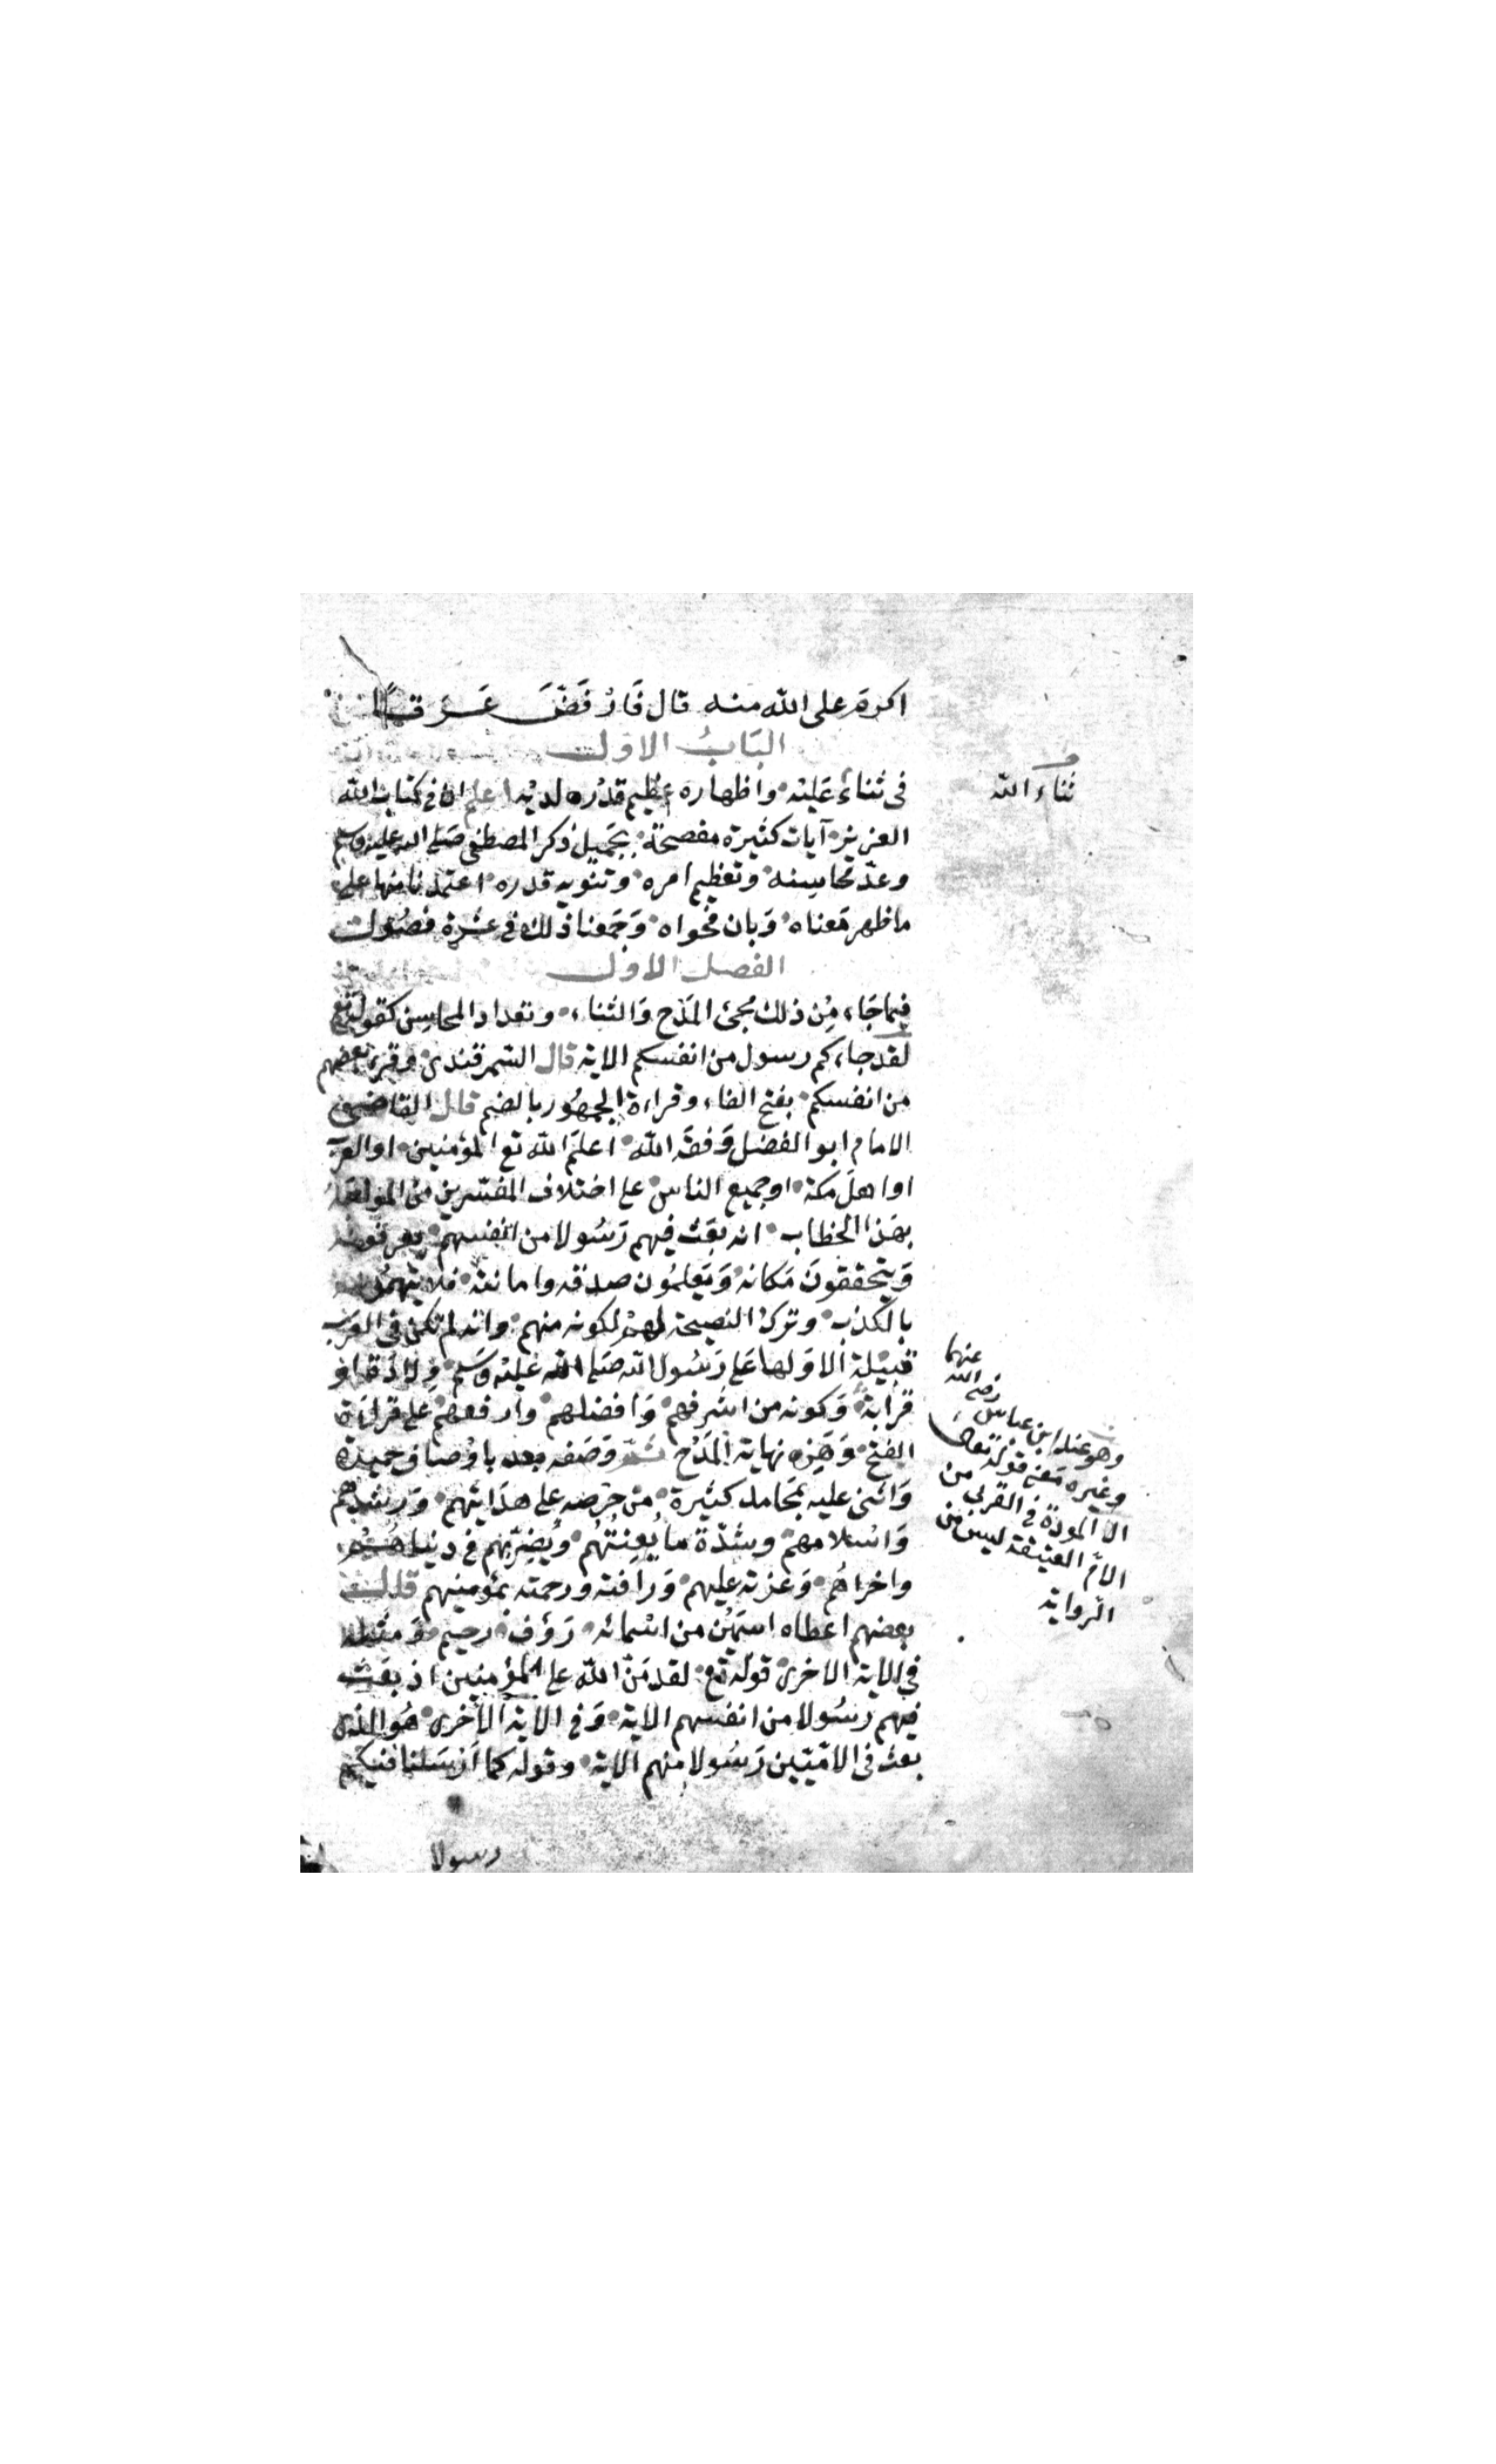 اكرم على الله منه قال فَارْفَضَّ عَرَقًا
البَابُ الاول
فى ثناءَ عَليْه واظهاره عظيم قدْره لديْه اعلم ان فى كتاب الله
العزيز آيات كثيرة مفصحة بجَميل ذكر المصطفى صَلى الله عليه وسلم
وعدّ محَاسِنه وتعَظيم امره وتنويه قدره اعتمدنا منها على
ما ظهر مَعناه وَبان فحْواه وَجَمَعنا ذلك فى عشرة فصُول
الفصل الاول
فيما جَاء مِن ذلك مجئ المَدْح وَالثناء وتعداد المحاسِن كقوله تع
لقد جاءكم رسول من انفسكم الاية قال السّمرقندى وقرئ بعضهم
من انفسكم بفتح الفاء وقراءة الجمهُور بالضم قال القاضى
الامام ابو الفضل وَفقه الله اعلم الله تع المؤمنين او العرَب
او اهل مكة او جميع الناس على اختلاف المفسّرين من المواجَه
بهَذا الخطاب انه بعَث فيهم رَسُولا من انفسهم يعرفونه
وَيتحققونَ مَكانه وَيَعلمُون صدقه وامانته فلا يتهمُونه
بالكذب وترك النصيحة لهمْ لكونه منهم وانه لم تكن فى العَرَب
قبيلة الا وَلها عَلى رَسُول الله صَلى الله عَليْه وَسَلم وِلادَة او
قرَابة وَكونه من اشرفهم وَافضلهم وارفعهمْ على قراءة
الفتح وَهَذه نهاية المَدْح ثمّ وَصَفه بعد باوْصاف حميدة
وَاثنى عليه بمَحَامد كثيرة من حرْصه على هدَايتهم وَرشدهم
وَاسْلامهمْ وشدّة ما يُعنِتُهُم وَيُضرّبهم فى دنياهُمْ
واخراهُم وَعزته عليهم وَرَأفته ورحمته بمؤمنيهم قال
بعضهم اعطاه اسمَيْن من اسْمائه رَؤف رحيم وَمثله
فى الاية الاخرى قوله تع لقد مَنّ الله على المؤمنين اذ بعَث
فيهم رَسُولا من انفسهم الاية وَفى الاية الاخرى هُوَ الذى
بعث فى الامّيّين رَسُولا منهم الاية وقوله كما ارْسَلنا فيكم
رسولا
ثناء الله
عنهما
رضى الله
وهو عند ابن عباس
وغيره مَعنى قوله تعالى
الا المودة فى القربى من
الام العتيقة ليس من
الرواية